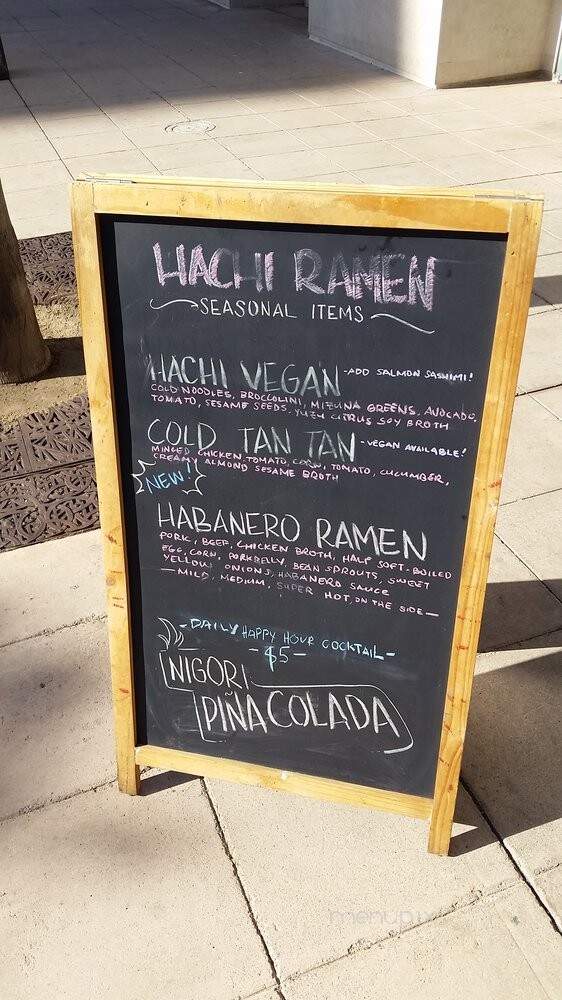 HACHI RAMEN
SEASONAL ITEMS
HACHI VEGAN -ADD SALMON SASHIMI!
COLD NOODLES, BROCCOLINI, MIZUNA GREENS, AVOCADO,
TOMATO, SESAME SEEDS, YUZU CITRUS SOY BROTH
COLD TAN TAN -VEGAN AVAILABLE!
MINCED CHICKEN, TOMATO, CORN, TOMATO, CUCUMBER,
CREAMY ALMOND SESAME BROTH
NEW!
HABANERO RAMEN
PORK, BEEF, CHICKEN BROTH, HALF SOFT-BOILED
EGG, CORN, PORKBELLY, BEAN SPROUTS, SWEET
YELLOW ONIONS, HABANERO SAUCE
—MILD, MEDIUM, SUPER HOT, ON THE SIDE—
-DAILY HAPPY HOUR COCKTAIL-
-$5-
NIGORI
PIÑA COLADA